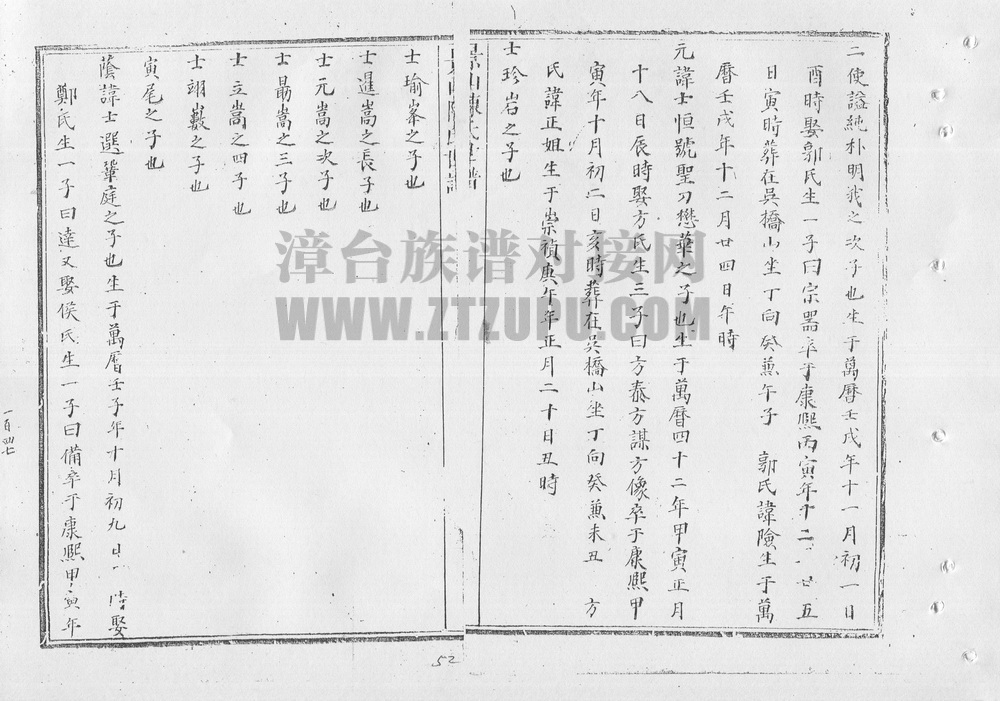 二使謚純朴明我之次子也生于萬曆壬戌年十一月初一日
酉時娶郭氏生一子曰宗器卒于康熙丙寅年十二 廿五
日寅時葬在吳橋山坐丁向癸兼午子 郭氏諱險生于萬
曆壬戌年十二月廿四日午時
元諱士恒號聖刃懋華之子也生于萬曆四十二年甲寅正月
十八日辰時娶方氏生三子曰方泰方謀方像卒于康熙甲
寅年十月初二日亥時葬在吳橋山坐丁向癸兼未丑 方
氏諱正姐生于崇禎庚午年正月二十日丑時
士珍岩之子也
士瑜峯之子也
士暹嵩之長子也
士元嵩之次子也
士勗嵩之三子也
士立嵩之四子也
士翊嶽之子也
寅尾之子也
蔭諱士選鞏庭之子也生于萬曆壬子年十月初九日 時娶
鄭氏生一子曰達又娶侯氏生一子曰備卒于康熙甲寅年
一百四七
52
漳台族谱对接网
WWW.ZTZUPU.COM